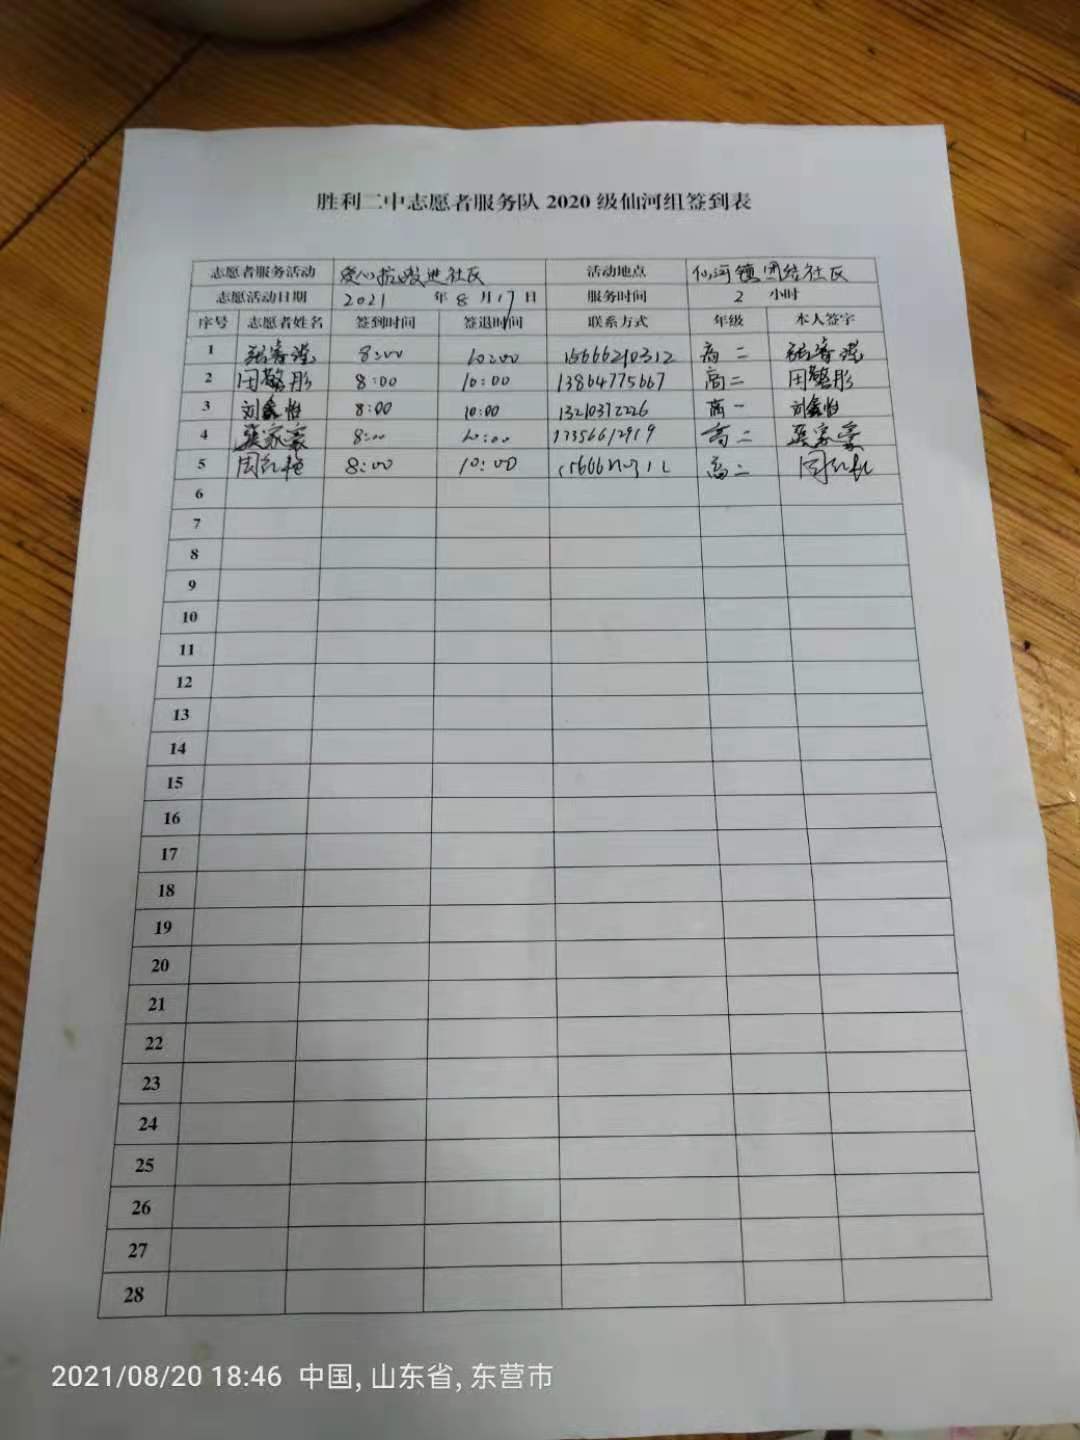 胜利二中志愿者服务队 2020 级仙河组签到表
志愿者服务活动 爱心 进社区 活动地点 仙河镇团结社区
志愿活动日期 2021 年 8 月 17 日 服务时间 2 小时
序号 志愿者姓名 签到时间 签退时间 联系方式 年级 本人签字
1 8:00 10:00 15666210312 高二
2 田馨彤 8:00 10:00 13864775667 高二 田馨彤
3 刘鑫怡 8:00 10:00 13210372226 高一 刘鑫怡
4 家豪 8:00 10:00 高二 家豪
5 8:00 10:00 高二
6
7
8
9
10
11
12
13
14
15
16
17
18
19
20
21
22
23
24
25
26
27
28
2021/08/20 18:46 中国, 山东省, 东营市